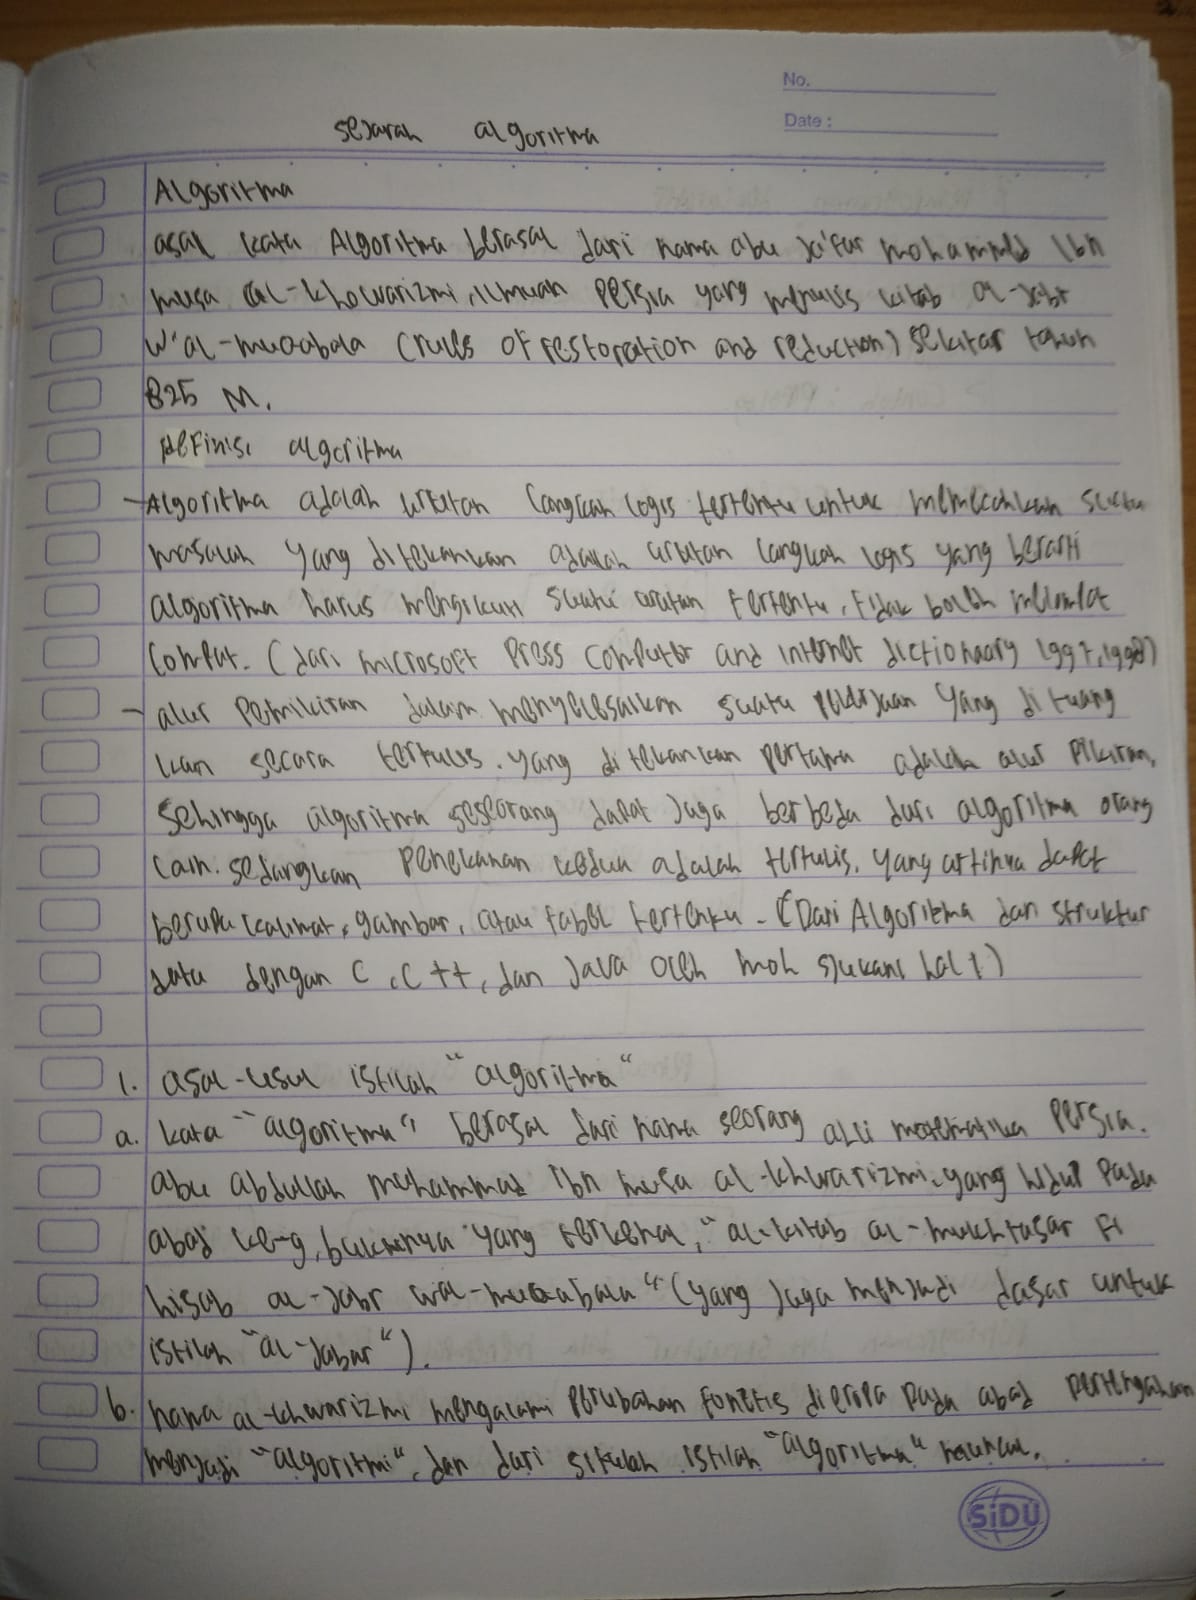 No.
Date :
sejarah algoritma
Algoritma
asal kata Algoritma berasal dari nama abu Ja'far mohammed Ibn
musa al-khowarizmi, ilmuan persia yang menulis kitab al-jabr
w'al-muqabala (rules of restoration and reduction) sekitar tahun
825 M.
definisi algoritma
- Algoritma adalah urutan langkah logis tertentu untuk memecahkan suatu
masalah yang ditekankan adalah urutan langkah logis yang berarti
algoritma harus mengikuti suatu urutan tertentu, tidak boleh melompat
lompat. (dari microsoft press computer and internet dictionaory 1997, 1998)
- alur pemikiran dalam menyelesaikan suatu pekerjaan yang di tuang
kan secara tertulis. yang di tekankan pertama adalah alur pikiran,
sehingga algoritma seseorang dapat juga berbeda dari algoritma orang
lain. sedangkan penekanan kedua adalah tertulis, yang artinya dapat
berupa kalimat, gambar, atau tabel tertentu. (Dari Algoritma dan struktur
data dengan C, C++, dan Java oleh moh sjukani hal 1)
1. asal-usul istilah "algoritma"
a. kata "algoritma" berasal dari nama seorang ahli matematika persia.
abu abdullah muhammad Ibn musa al-khwarizmi, yang hidup pada
abad ke-9, bukunya yang terkenal, "al-kitab al-mukhtasar fi
hisab al-jabr wal-muqabala" (yang juga menjadi dasar untuk
istilah "al-jabar").
b. nama al-khwarizmi mengalami perubahan fonetis dieropa pada abad pertengahan
menjadi "algoritmi", dan dari situlah istilah "algoritma"
SiDU